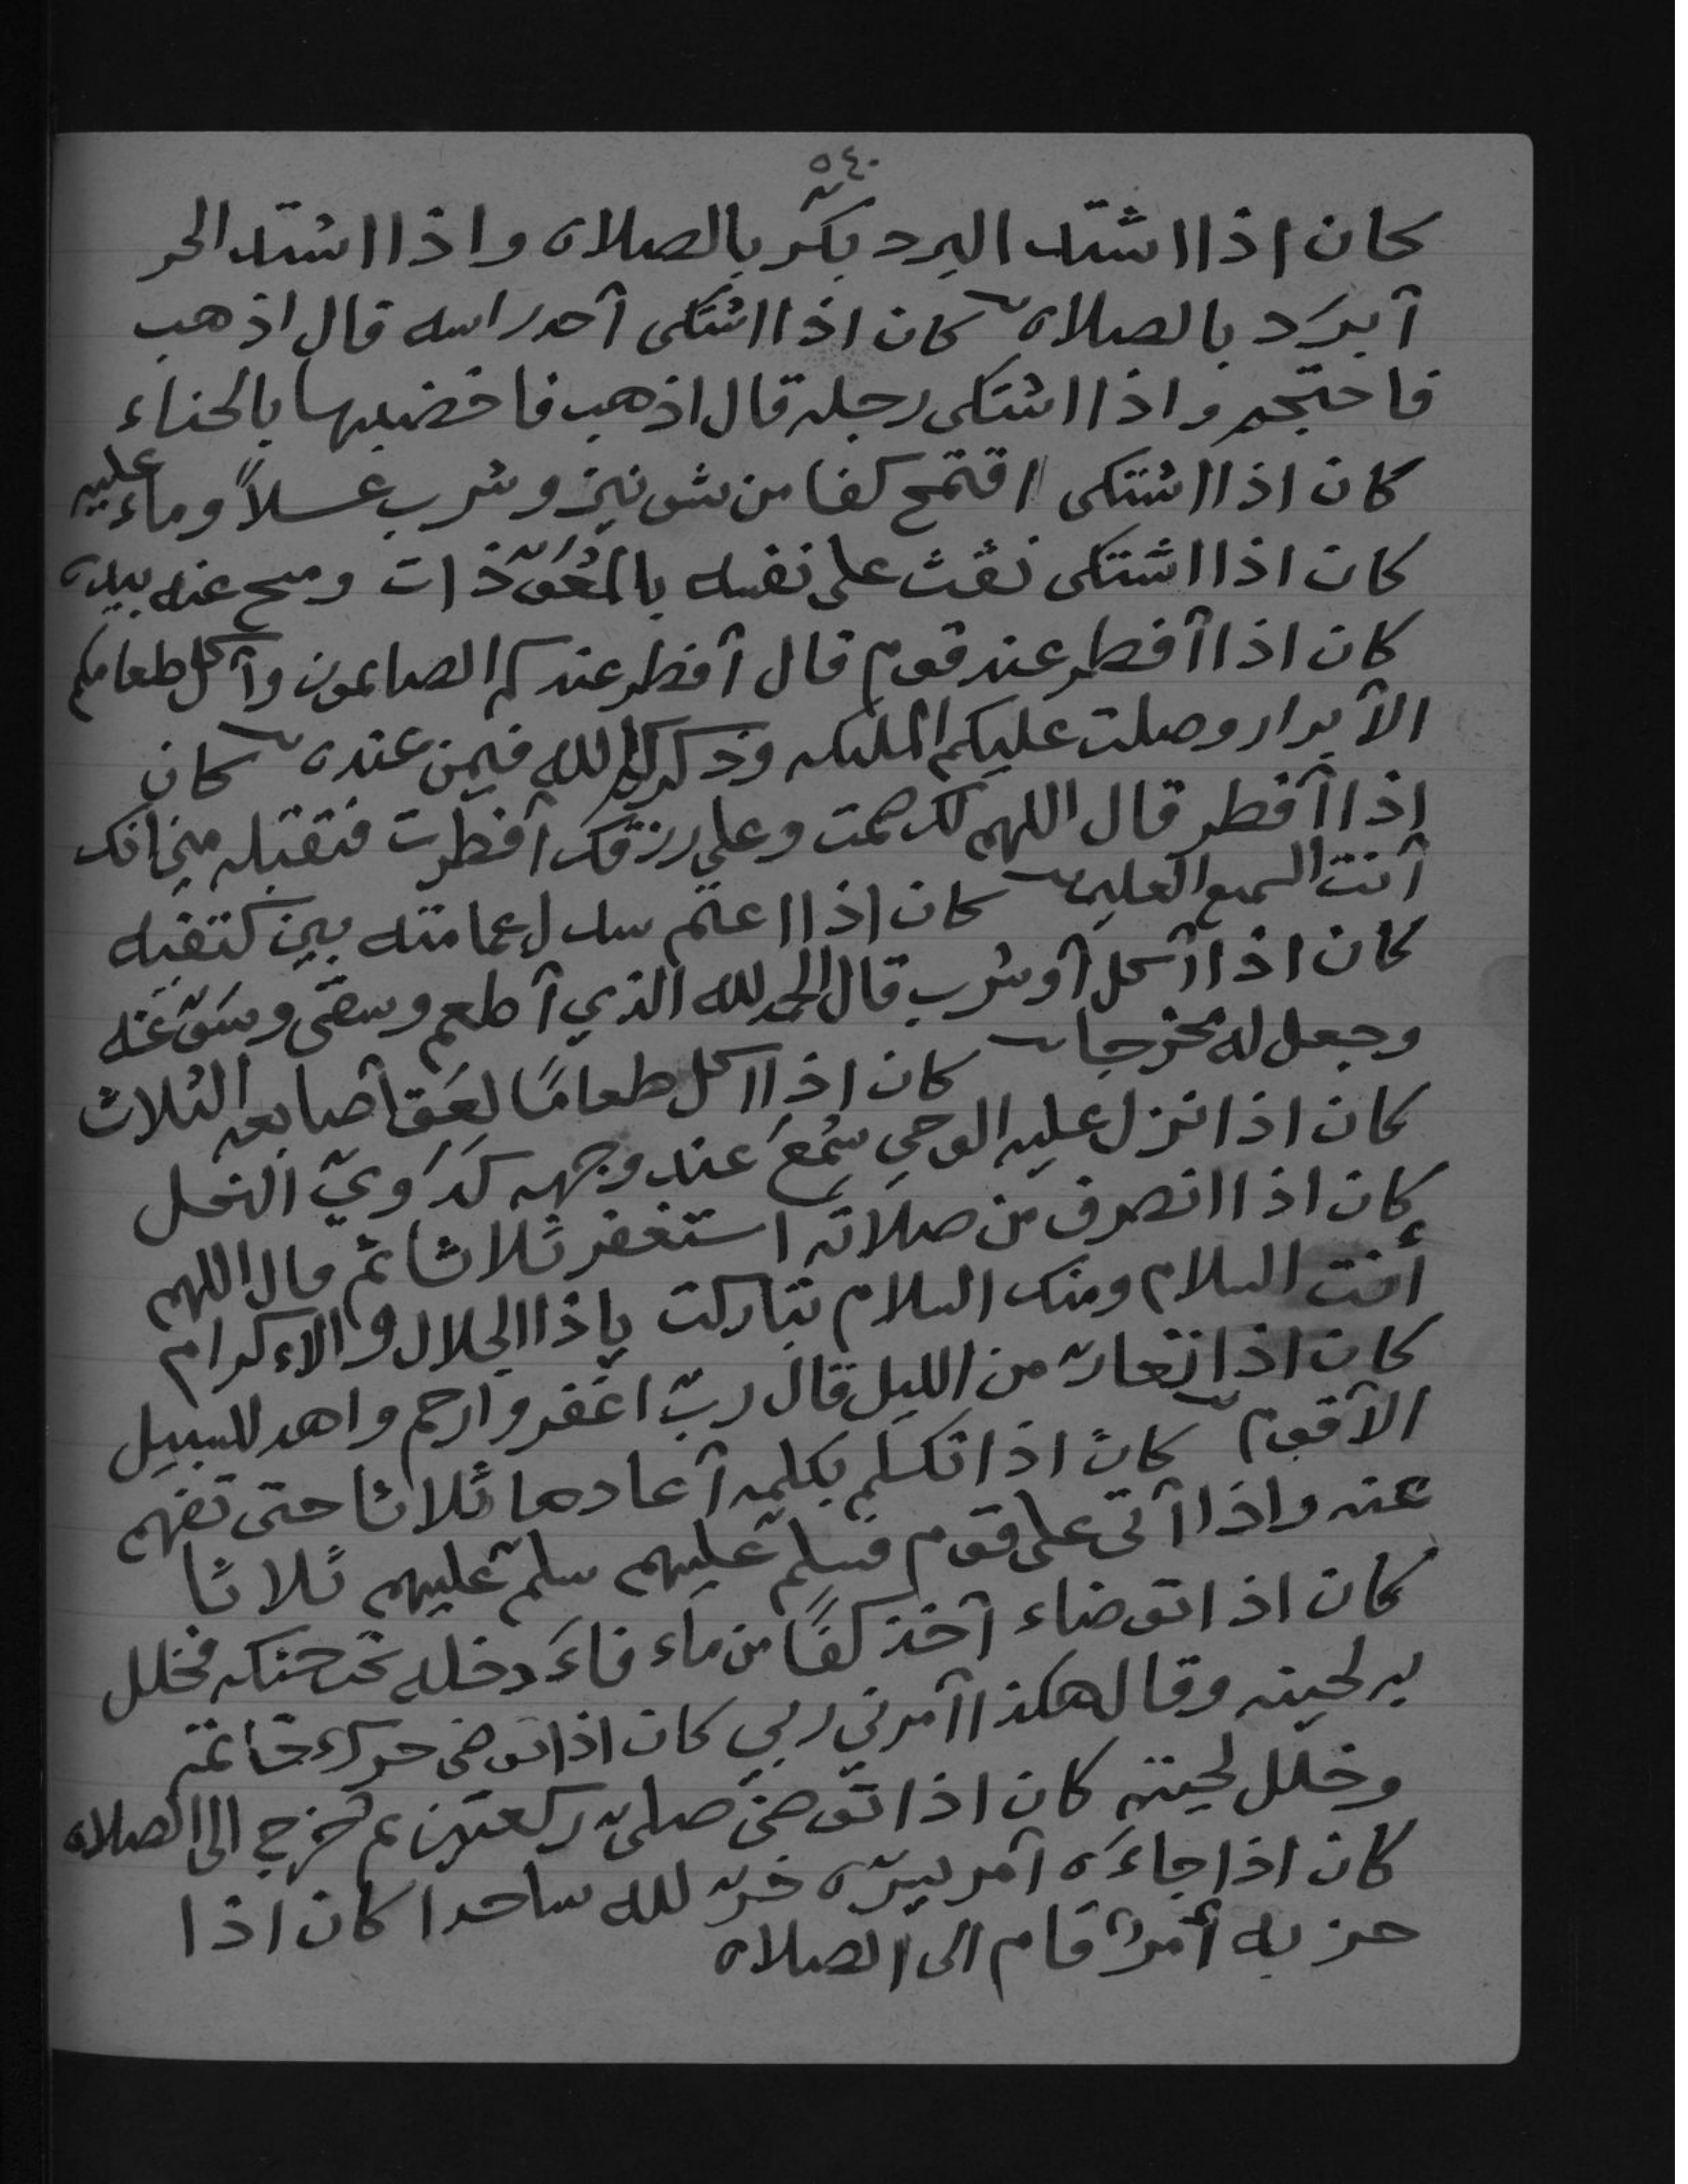 ٥٤٠
كان اذا اشتد البرد بكّر بالصلاة واذا اشتد الحر
آبرَد بالصلاة كان اذا اشتكى آحد راسه قال اذهب
فاحتجم واذا اشتكى رجله قال اذهب فاخضبها بالحناء
كان اذا اشتكى اقتمح كفا من شونيز وشرب عسلاً وماء عليه
كان اذا اشتكى نفث على نفسه بالمُعَوّذات ومسح عنه بيده
كان اذا آفطر عند قوم قال آفطر عندكم الصايمون وآكل طعامكم
الآبرار وصلت عليكم المليكه وذكركم الله فيمن عنده كان
اذا آفطر قال اللهم لك صمت وعلى رزقك آفطرت فتقبله مني انك
آنت السميع العليم كان اذا اعتم سدل عمامته بين كتفيه
كان اذا آكل آو شرب قال الحمد لله الذي آطعم وسقى وسَوّغه
وجعل له مخرجا كان اذا اكل طعامًا لعَق آصابعه الثلاث
كان اذا نزل عليه الوحي سُمعَ عند وجهه كدَويّ النحل
كان اذا انصرف من صلاته استغفر ثلاثا ثم قال اللهم
أنت السلام ومنك السلام تباركت ياذا الجلال والاءكرام
كان اذا تعارّ من الليل قال ربّ اغفر وارحم واهد للسبيل
الآقوم كان اذا تكلم بكلمه آعادها ثلاثا حتى تفهم
عنه واذا آتى على قوم فسلم عليهم سلم عليهم ثلاثا
كان اذا توضاء آخذ كفًا من ماء فاءَدخله تحت حنكه فخلل
به لحيته وقال هكذا آمرني ربي كان اذا توضى حرك خاتمه
وخلل لحيته كان اذا توضى صلىّ ركعتين ثم خرج الى الصلاه
كان اذا جاءَه آمر يسرّه خرّ لله ساجدا كان اذا
حزبه أمرٌ قام الى الصلاه